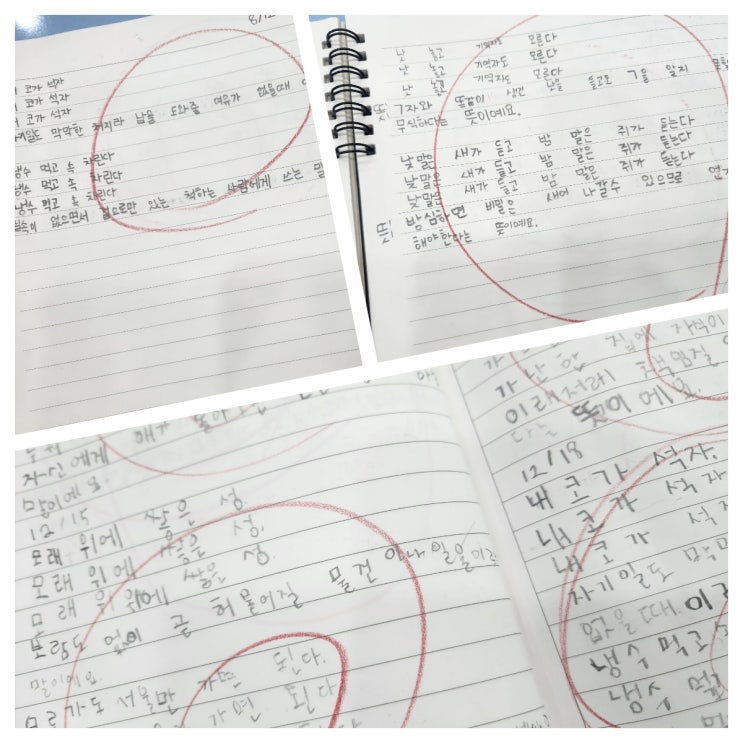 8/12
코가 석자
코가 석자
코가 석자
막막한 처지라 남을 도와줄 여유가 없을때
냉수 먹고 속 차린다
냉수 먹고 속 차린다
냉수 먹고 속 차린다
없으면서 겉으로만 있는 척하는 사람에게 쓰는 말
낫 놓고 기역자도 모른다
낫 놓고 기역자도 모른다
낫 놓고 기역자도 모른다
뜻 ㄱ자와 똑같이 생긴 낫을 들고도 ㄱ을 알지
무식하다는 뜻이에요.
낮말은 새가 듣고 밤 말은 쥐가 듣는다
낮말은 새가 듣고 밤 말은 쥐가 듣는다
낮말은 새가 듣고 밤 말은 쥐가 듣는다
뜻 방심하면 비밀은 새어 나갈수 있으므로
해야한다는 뜻이에요.
자신에게
말이에요.
12/15
모래 위에 쌓은 성.
모래 위에 쌓은 성.
모래 위에 쌓은 성.
보람도 없이 곧 허물어질 물건 이나 일을
말이에요.
모로가도 서울만 가면 된다.
가면 된다
가난한 집에 자식이
이래저래
다는 뜻이에요.
12/18
내 코가 석자.
내 코가 석자
내 코가 석자
자기일도
없을때 이
냉수 먹고
냉수